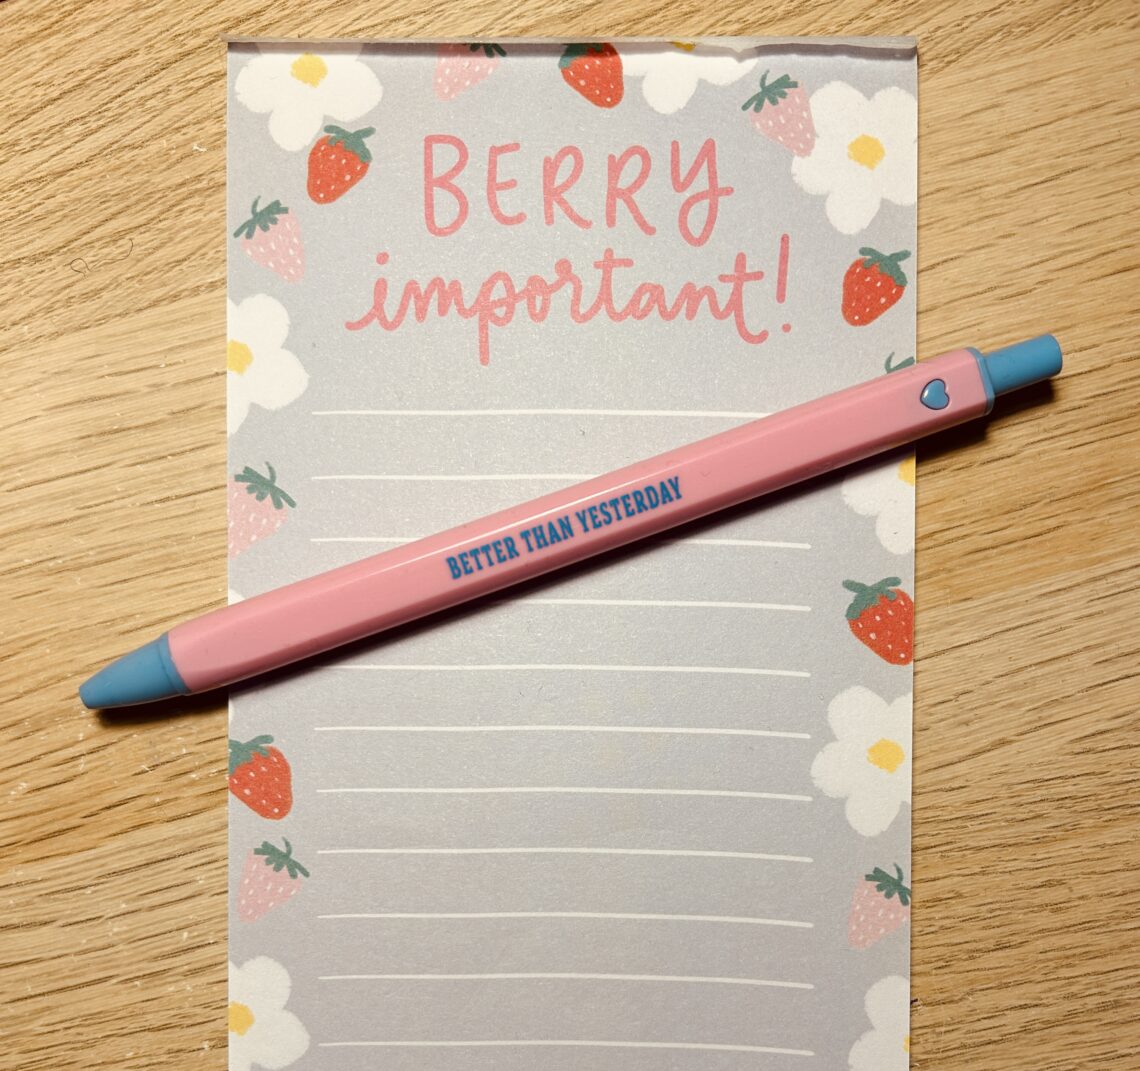 BERRY
important!
BETTER THAN YESTERDAY